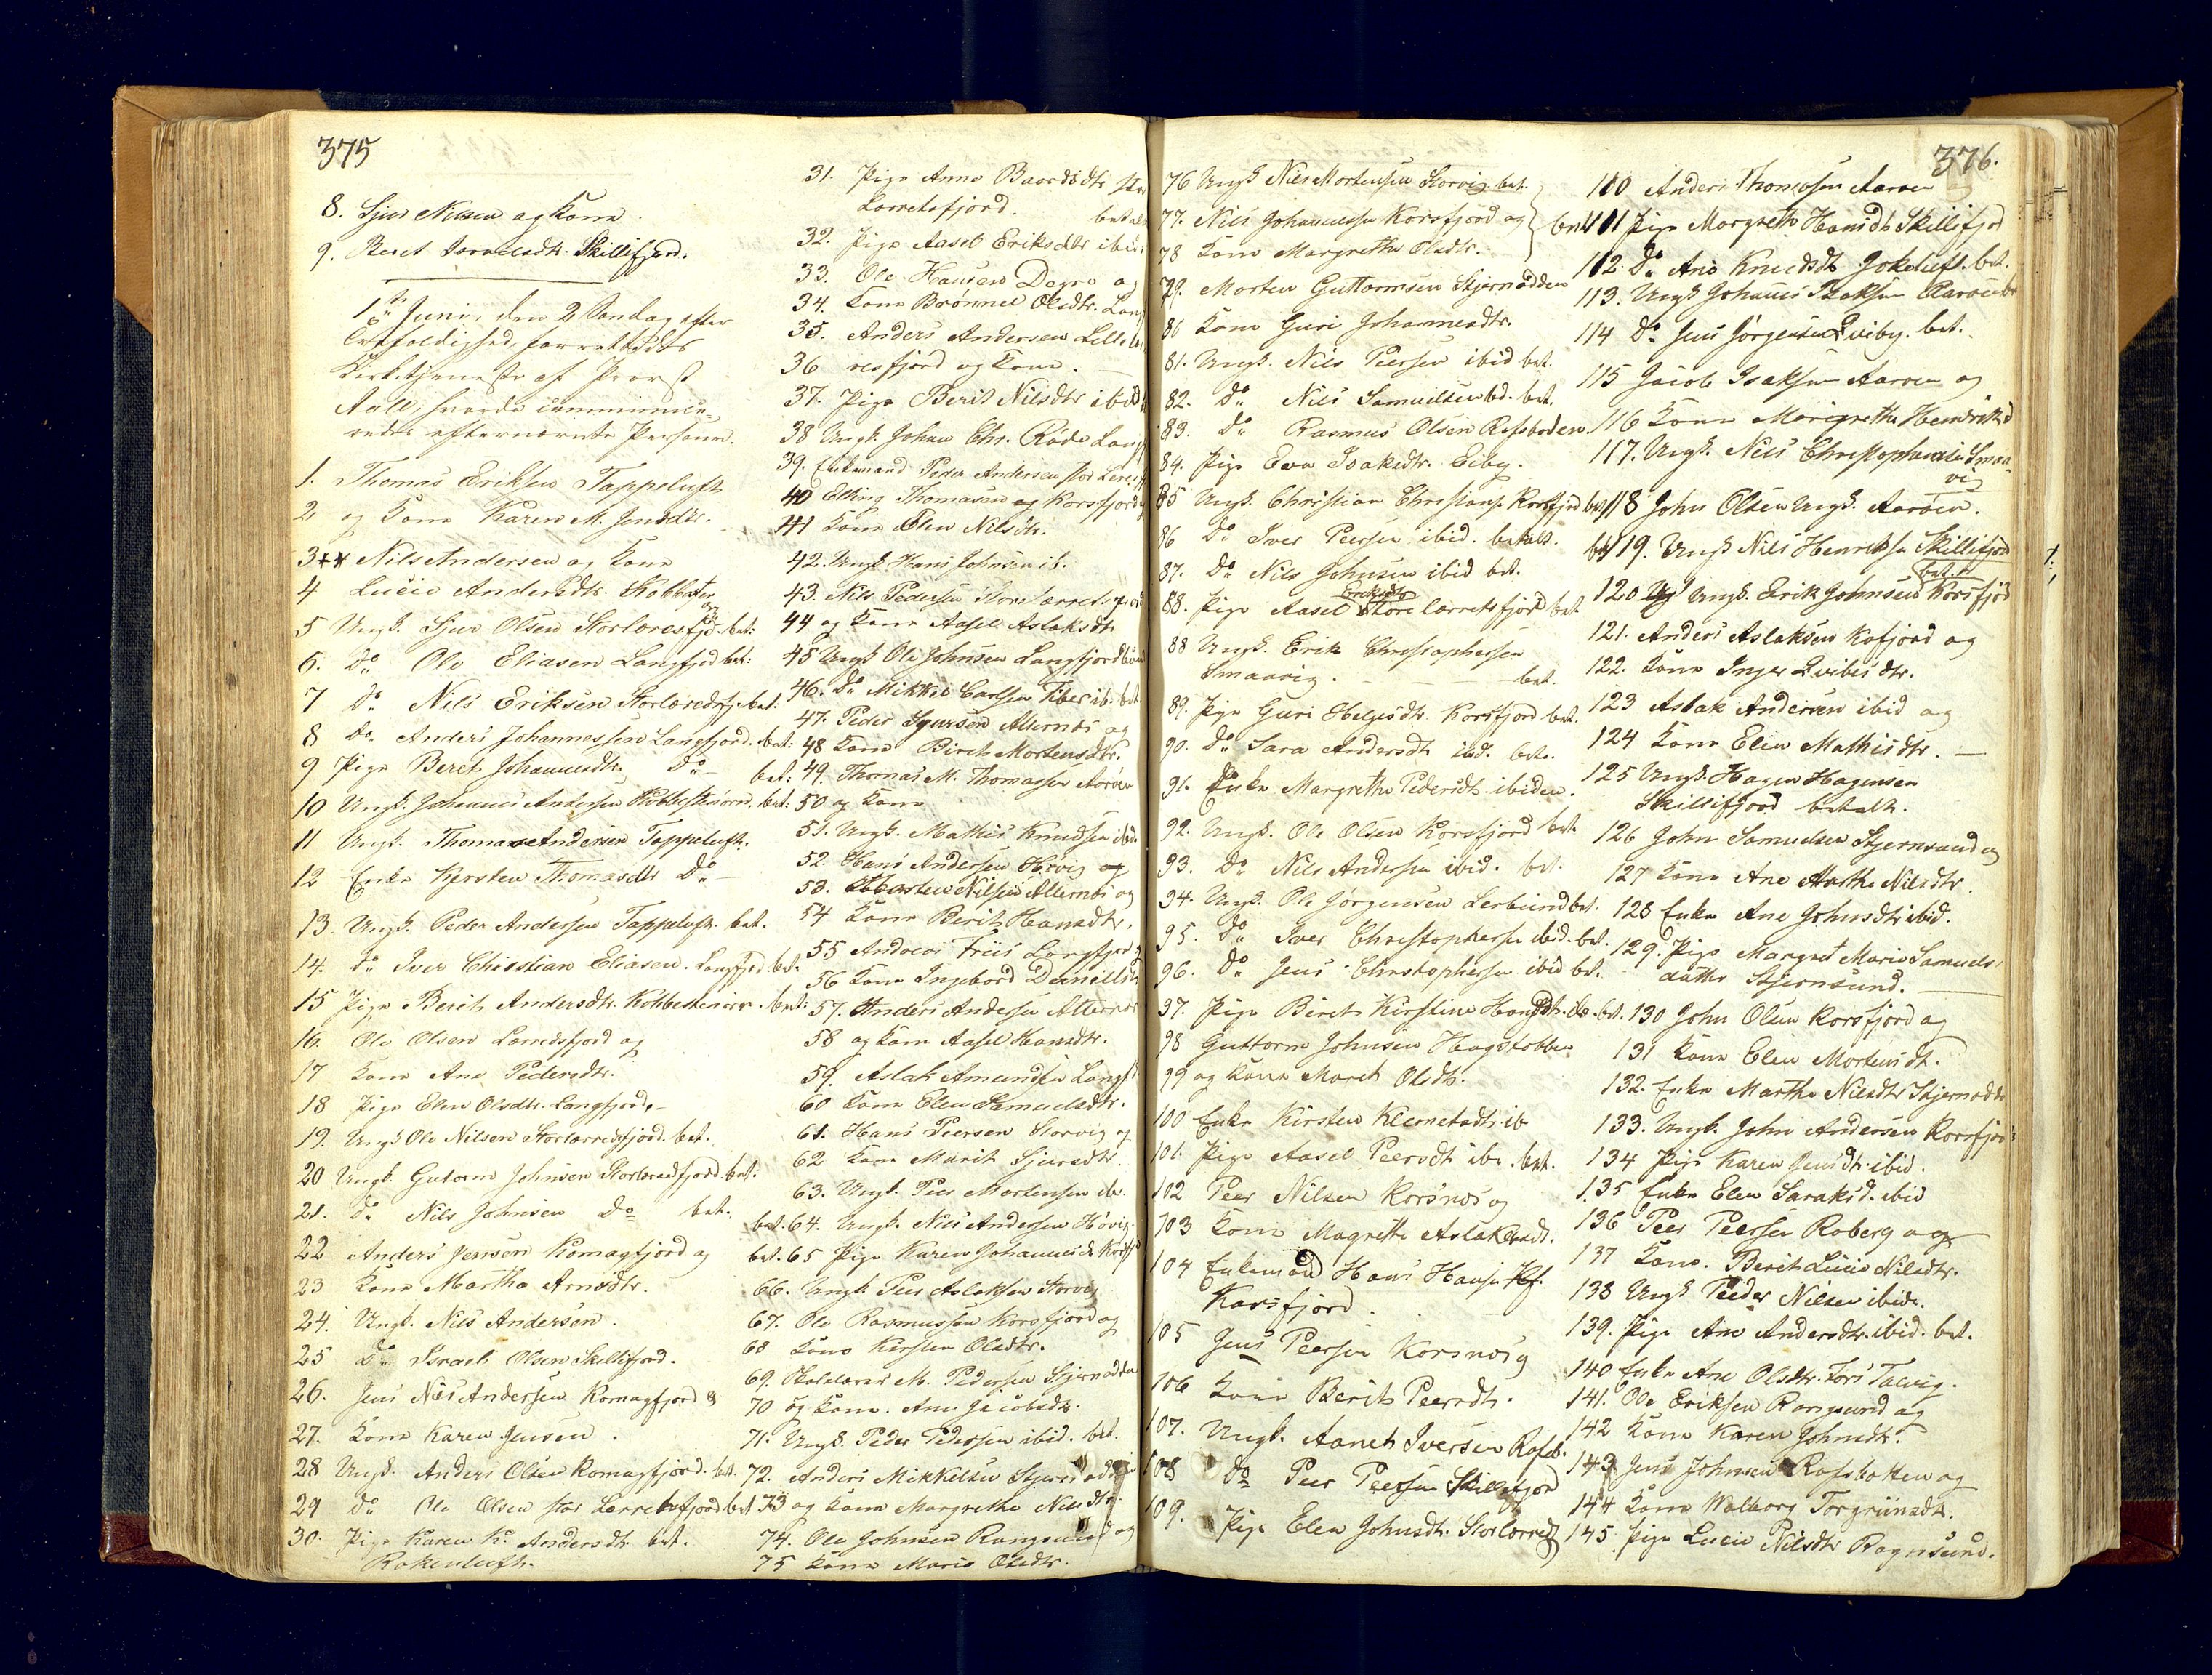 375
8. Sjur Nilsen og Kone.
9. Beret Israelsdtr. Skillifjord.
1ste Juni, den 2 Søndag efter
Trefoldighed, forrettedes
Kirketjeneste af Provst
Aall, hvorda communice-
redes efternævnte Personer.
1. Thomas Eriksen Tappeluft
2 og Kone Karen M. Jensdtr.
3 Nils Andersen og Kone
4 Lucie Andersdtr.
5 Ungk. Sjur Olsen Storlæresfjd. bet:
6. Do Ole Eliasen Langfjord bet:
7 Do Nils Eriksen Storlæredsfj. bet:
8 Do Anders Johannessen Langfjord. bet:
9 Pige Beret Johannesdtr. Do bet:
10 Ungk. Johannes Andersen bet:
11 Ungk. Thomas Andersen Tappeluft.
12 Enke Kjersten Thomasdtr Do
13. Ungk. Peder Andersen Tappeluft. bet.
14. Do Iver Christian Eliasen. Langfjord. bet.
15 Pige Berit Andersdtr. bet:
16. Ole Olsen Lærredsfjord og
17 Kone Ane Pedersdtr.
18 Pige Elen Olsdtr. Langfjord.
19. Ungk Ole Nilsen Storlærredsfjord. bet.
20 Ungk. Gutorm Johnsen Storlæredfjord. bet:
21. Do Nils Johnsen Do bet.
22 Anders Jensen Komagfjord og
23 Kone Martha Arnsdtr.
24. Ungk. Nils Andersen.
25 Do Israel Olsen Skillifjord.
26. Jens Nils Andersen Komagfjord &
27. Kone Karen Jensen.
28 Ungk. Anders Olsen Komagfjord. bet.
29 Do Ole Olsen stor Lerretsfjord bet
30. Pige Karen K. Andersdtr bet.
Rokeluft.
31. Pige Anne Baardsdtr
Lærretsfjord. betalt
32. Pige Aasel Eriksdtr ibid
33. Ole Hansen Degre og
34. Kone Brønnel Olsdtr. Lang
35. Anders Andersen Lille
36 resfjord og Kone.
37. Pige Berit Nilsdtr ibid
38 Ungk. Johan Chr. Røde Langf
39. Enkemand Peder Andersen stor Leresf
40 Elling Thomasen og Korsfjord
41 Kone Elen Nilsdtr.
42. Ungk Hans Johnsen ib.
43. Nils Pedersen Stor Lærretsfjord
44 og Kone Aasel Aslaksdtr
45 Ungk Ole Johnsen Langfjordbund
46. Do Mikkel Carlsen ib. bet
47. Peder Sjursen Alternæs og
48 Kone Biret Mortensdtr.
49. Thomas M. Thomassen Aarøen
50 og Kone
51. Ungk. Mathis Knudsen ibid.
52. Hans Andersen Høvig
53. Morten Nilsen Alternæs og
54 Kone Berith Hansdtr.
55 Andreas Friis Langfjord
56 Kone Ingebord Danielsdtr
57. Anders Andersen Alternæs
58 og Kone Aasel Hansdtr.
59. Aslak Amundsen Langf
60 Kone Elen Samuelsdtr.
61. Hans Peersen Storvig og
62 Kone Marit Sjursdtr.
63. Ungk. Peer Mortensen ib.
bet. 64. Ungk. Nils Andersen Høvig.
bet. 65 Pige Karen Johannesd. Korsfj
66. Ungk. Peer Aslaksen Storvig
67. Ole Rasmussen Korsfjord og
68 Kone Kirsten Olsdtr.
69. Skolelærer M. Pedersen Stjernødden
70 og Kone. Ane Jacobsdtr.
71. Ungk. Peder Pedersen ibid. bet.
72. Anders Mikkelsen
73 og Kone Margrethe Nilsdtr.
74. Ole Johnsen Rongsund og
75 Kone Marie Olsdtr.
376.
76 Ungk Nils Mortensen Storvig bet.
77. Nils Johannessen Korsfjord og
78 Kone Margrethe Olsdtr.
79. Morten Guttormsen Stjernødden
80 Kone Guri Johannesdtr.
81. Ungk. Nils Peersen ibid bet.
82. Do Nils Samuelsen ibid. bet.
83. Do Rasmus Olsen Rafsboden.
84. Pige Eva Isaksdtr. Eiby.
85 Ungk. Christian Christians. Korsfjord bet
86 Do Iver Peersen ibid. betalt.
87. Do Nils Johnsen ibid bet.
88. Pige Aasel Eriksdtr Store lærretsfjord bet
88 Ungk. Erik Christophersen
Smaavig. bet.
89. Pige Guri Helgesdtr. Korsfjord bet.
90. Do Sara Andersdt ibid. bet.
91. Enke Margrethe Pedersdtr. ibiden.
92. Ungk. Ole Olsen Korsfjord bet.
93. Do Nils Andersen ibid. bet.
94. Ungk. Ole Jørgensen Lerbund bet.
95. Do Iver Christophersen ibid. bet.
96. Do Jens Christophersen ibid bet.
97. Pige Biret Kirstine Hansdtr. ib. bet.
98 Guttorm Johnsen Hagstobben
99 og Kone Maret Olsdtr.
100 Enke Kirsten Klemetsdtr. ib
101. Pige Aasel Peersdt ib. bet.
102 Peer Nilsen Korsnæs og
103 Kone Magrethe Aslaksdt.
104 Enkemand Hans Hansen
Korsfjord.
105 Jens Peersen Korsnæs og
106 Kone Berit Peersdt.
107. Ungk. Aanet Iversen Rafsb.
108 Do Peer Peersen Skillefjord
109. Pige Elen Johnsdt. Storlærredsf
110 Anders Thomasen Aarøen
111 Pige Margreth Hansdtr Skillifjord
112 Do Ane Knudsdt Jokeluft. bet.
113. Ungk Johannes Isaksen Aarøen bet
114 Do Jens Jørgensen Qviby. bet.
115 Jacob Isaksen Aarøen og
116 Kone Margrethe Hendriksd
117. Ungk. Nils Christophersen Smaa-
vig
118 John Olsen Ungk. Aarøen.
bet 119. Ungk Nils Henriksen Skillifjord
bet.
120 Ungk. Erik Johnsen Korsfjord
121. Anders Aslaksen Kafjord og
122. Kone Inger Qvibisdtr.
123 Aslak Andersen ibid og
124 Kone Elen Mathisdtr.
125 Ungk. Hagen Hagensen
Skillifjord betalt.
126 John Samuelsen Stjernsund og
127 Kone Ane Marthe Nilsdtr.
128 Enke Ane Johnsdtr ibid.
129. Pige Margret Marie Samuels-
datter Stjernsund.
130 John Olsen Korsfjord og
131 Kone Elen Mortensdt.
132. Enke Marthe Nilsdtr Stjernødd
133. Ungk. John Andersen Korsfjord
134 Pige Karen Jensdtr. ibid.
135 Enke Elen Saraksd. ibid
136 Peer Peersen Roberg og
137 Kone. Berit Lucie Nilsdtr.
138 Ungk Peder Nilsen ibid.
139. Pige Ane Andersdtr. ibid. bet.
140 Enke Ane Olsdtr. Fors Talvig.
141. Ole Eriksen Rongsund og
142 Kone Karen Johnsdtr.
143. Jens Johnsen Rafsbotten og
144 Kone Walborg Torgrimsdt.
145. Pige Lucie Nilsdtr Rognsund.